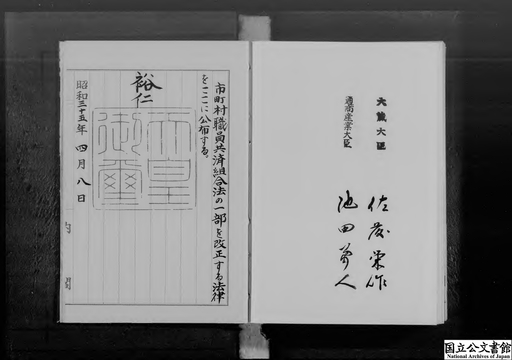 大藏大臣 佐藤栄作
通商産業大臣 池田勇人
市町村職員共済組合法の一部を改正する法律
をここに公布する。
裕仁
天皇
御璽
昭和三十五年 四月八日
国立公文書館
National Archives of Japan